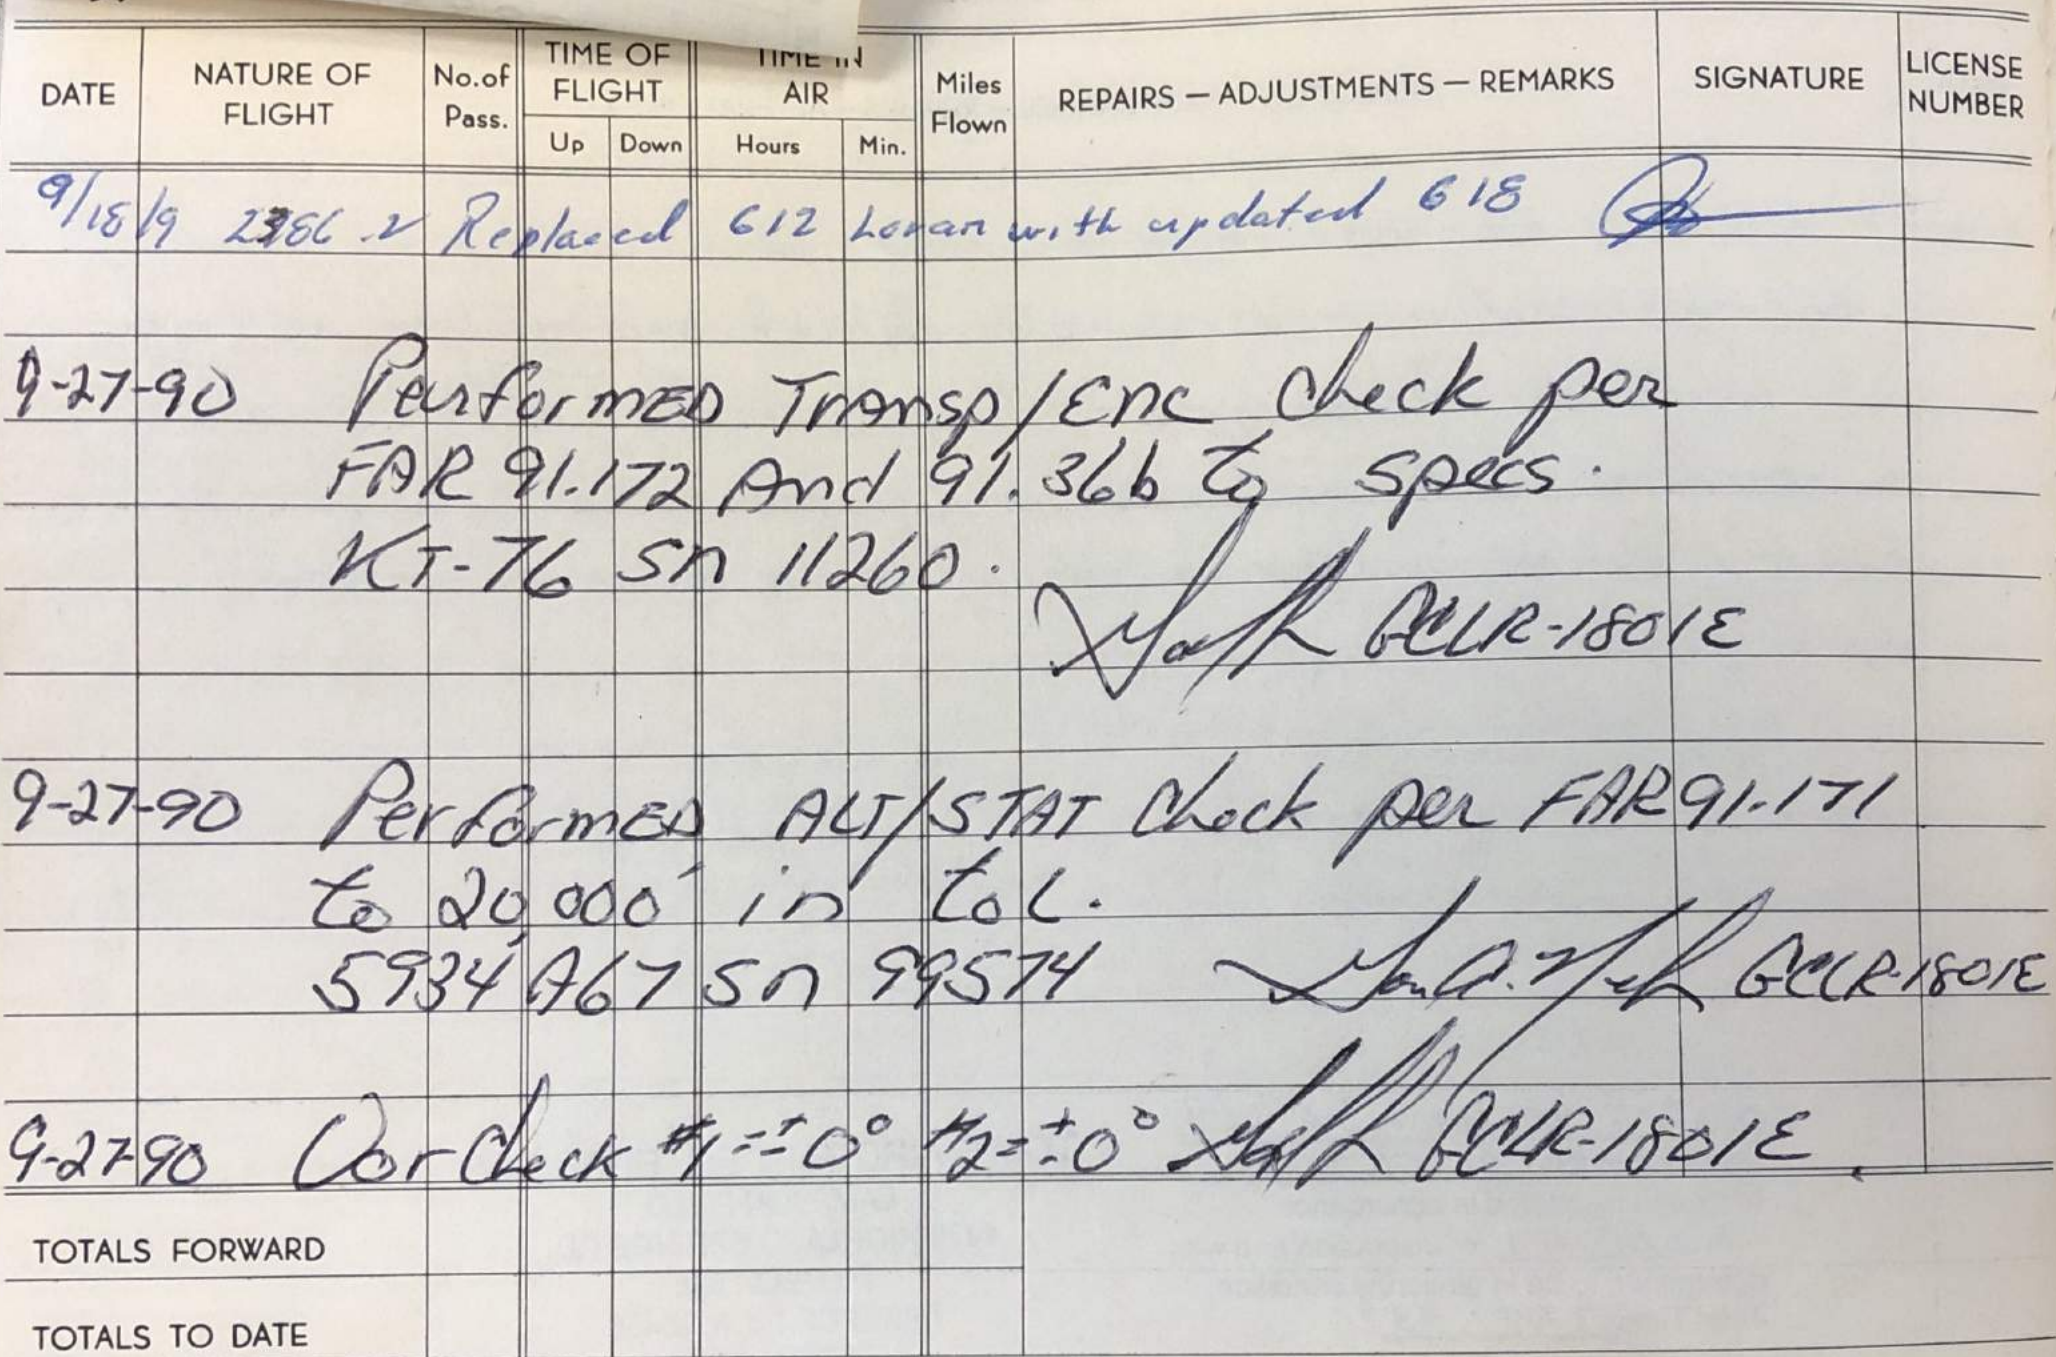 DATE NATURE OF FLIGHT No.of Pass. TIME OF FLIGHT Up Down TIME IN AIR Hours Min. Miles Flown REPAIRS — ADJUSTMENTS — REMARKS SIGNATURE LICENSE NUMBER
9/18/9 Replaced 612 Loran with updated 618
9-27-90 Performed Transp/Enc check per
FAR 91.172 And 91.36b to specs.
KT-76 sn 11260.
GCLR-1801E
9-27-90 Performed ALT/STAT Check per FAR 91.171
to 20,000' in tol.
5934 A67 sn 99574 GCLR-1801E
9-27-90 Vor Check #1=±0° #2=±0° GCLR-1801E
TOTALS FORWARD
TOTALS TO DATE